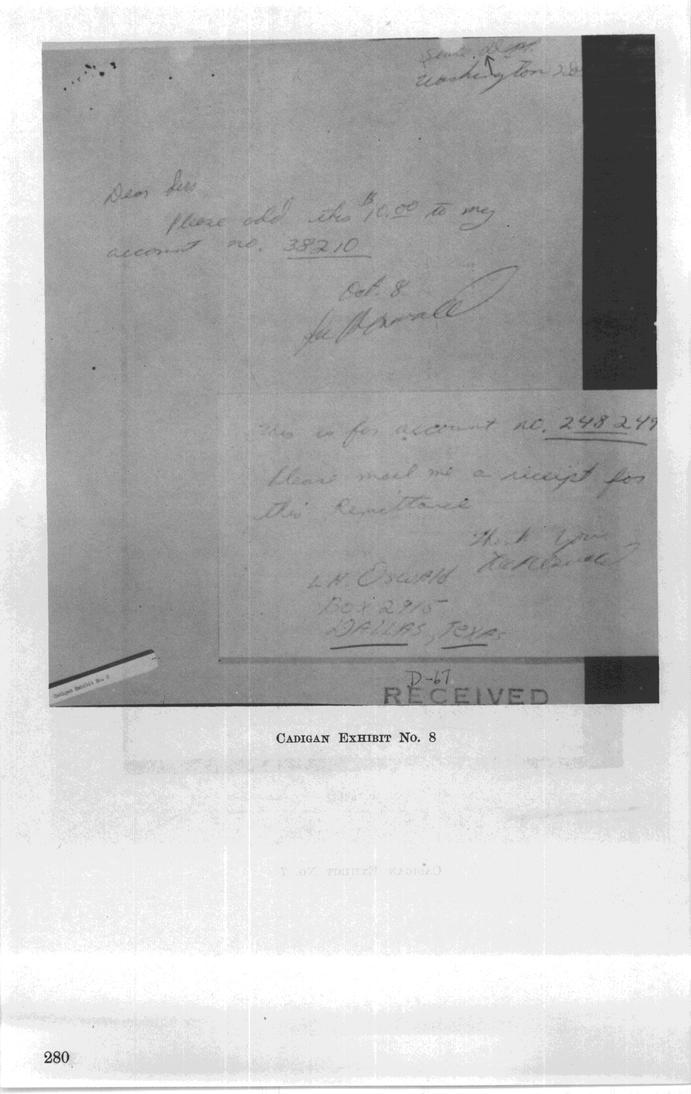 State Dept.
Washington
Dear Sirs
Please add this $10.00 to my
account no. 38210
Oct. 8
This is for account no. 248249
Please mail me a receipt for
this Remittance
Thank You
L.H. Oswald
Box 2915
DALLAS, TEXAS
Cadigan Exhibit No. 8
D-67
RECEIVED
CADIGAN EXHIBIT No. 8
CADIGAN EXHIBIT No. 7
280